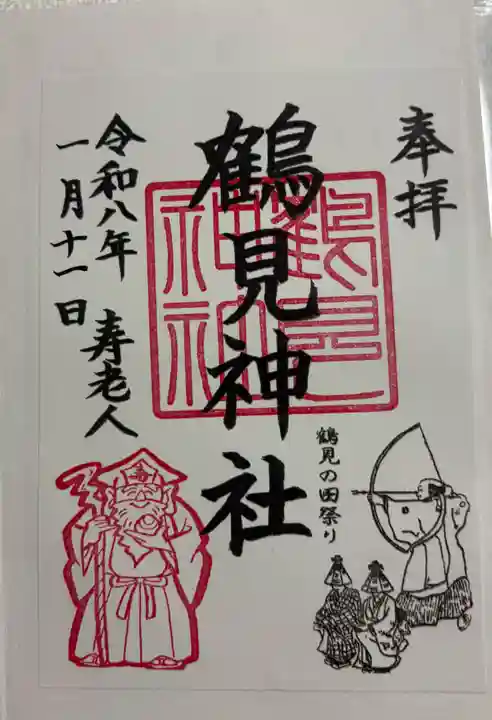 奉拝
鶴見神社
鶴見神社
鶴見の田祭り
令和八年
一月十一日
寿老人
寿